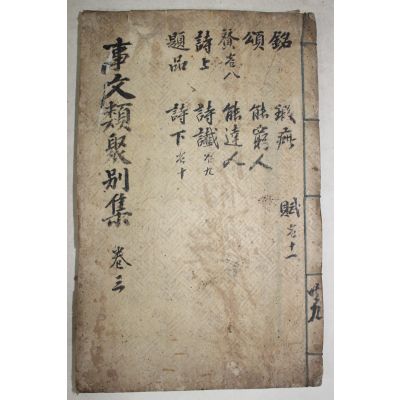 銘 瑕疵
頌 能窮人
卷八 能達人
詩上 詩讖 卷九
題品 詩下 卷十
賦 卷十一
事文類聚別集 卷三
廿九